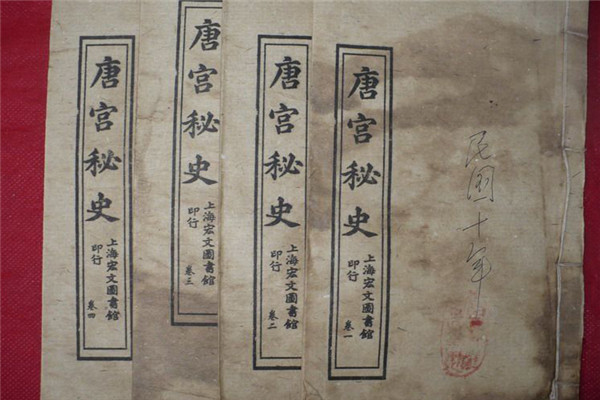 民国十年
唐宮秘史
上海宏文圖書館
印行
卷一
唐宮秘史
上海宏文圖書館
印行
卷二
唐宮秘史
上海宏文圖書館
印行
卷三
唐宮秘史
上海宏文圖書館
印行
卷四